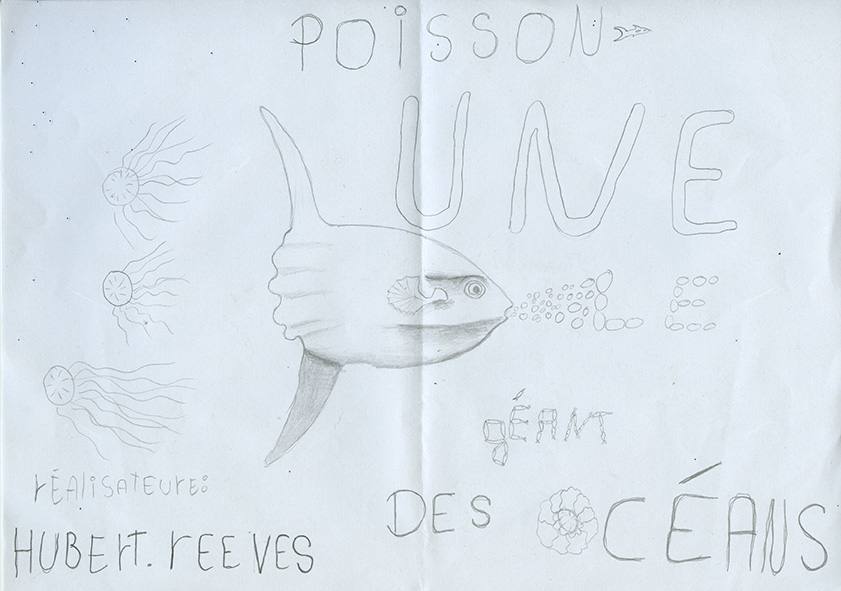 POiSSON
UNE
LE
gÉANT
DES OCÉANS
rÉAliSATEUre:
HUBErT. rEEVES